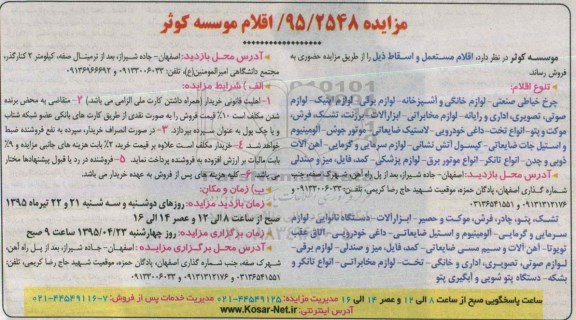 مزایده ۹۵/۲۵۴۸/ اقلام موسسه کوثر
موسسه کوثر در نظر دارد، اقلام مستعمل و اسقاط ذیل را از طریق مزایده حضوری به
فروش رساند.
تنوع اقلام:
چرخ خیاطی صنعتی- لوازم خانگی و آشپزخانه- لوازم برقی- لوازم اپتیک- لوازم
صوتی، تصویری، اداری و رایانه- لوازم مخابراتی- ابزارآلات- برزنت، تشک، فرش،
موکت و پتو- انواع تخت- داغی خودرویی- لاستیک ضایعاتی- موتور جوش- آلومینیوم
و استیل جات ضایعاتی- کپسول آتش نشانی- لوازم سرمایی و گرمایی- آهن آلات
ذوبی و چدن- انواع تانکر- انواع موتور برق- لوازم پزشکی- کمد، فایل، میز و صندلی
آدرس محل بازدید: اصفهان- جاده شیراز، بعد از پل راه آهن، شهرک صفه، جنب
شماره گذاری اصفهان، پادگان حمزه، موقعیت شهید حاج رضا کریمی، تلفن: ۰۹۱۳۳۰۰۶۰۳۳ و
۰۹۱۳۱۳۱۲۱۷۶ و ۰۳۱۳۶۵۴۱۵۵۱
تشک، پتو، چادر، فرش، موکت و حصیر- ابزارآلات- دستگاه نانوایی- لوازم
سرمایی و گرمایی- آلومینیوم و استیل ضایعاتی- داغی خودرویی- اتاق عقب
تویوتا- آهن آلات و سیم مسی ضایعاتی- کمد، فایل، میز و صندلی- لوازم برقی-
لوازم صوتی، تصویری، اداری و خانگی- تخت- لوازم مخابراتی- انواع تانکر و
بشکه- دستگاه پتو شویی و آبگیری پتو
آدرس محل بازدید: اصفهان- جاده شیراز، بعد از ترمینال صفه، کیلومتر ۲ کنارگذر،
مجتمع دانشگاهی امیرالمومنین(ع)، تلفن: ۰۹۱۳۳۰۰۶۰۳۳ و ۰۹۱۳۶۹۶۶۶۹۲
الف) شرایط مزایده:
۱- اهلیت قانونی خریدار (همراه داشتن کارت ملی الزامی می باشد) ۲- متقاضی به محض برنده
شدن مکلف است ۱۰٪ قیمت فروش را به صورت نقدی از طریق کارت های بانکی عضو شبکه شتاب
و یا چک پول به عنوان سپرده بپردازد. ۳- در صورت انصراف خریدار، سپرده به نفع فروشنده ضبط
خواهد شد. ۴- خریدار مکلف است علاوه بر قیمت خرید، ۲٪ بابت هزینه های جانبی مزایده و ۹٪
بابت مالیات بر ارزش افزوده به فروشنده پرداخت نماید. ۵- فروشنده در رد یا قبول پیشنهادها مختار
می باشد. ۶- کلیه هزینه های پس از فروش به عهده خریدار می باشد.
ب) زمان و مکان:
زمان بازدید مزایده: روزهای دوشنبه و سه شنبه ۲۱ و ۲۲ تیرماه ۱۳۹۵
صبح از ساعت ۸ الی ۱۲ و عصر ۱۴ الی ۱۶
زمان برگزاری مزایده: روز چهارشنبه ۱۳۹۵/۰۴/۲۳ ساعت ۹ صبح
آدرس محل برگزاری مزایده: اصفهان- جاده شیراز، بعد از پل راه آهن،
شهرک صفه، جنب شماره گذاری اصفهان، پادگان حمزه، موقعیت شهید حاج رضا کریمی، تلفن:
۰۹۱۳۳۰۰۶۰۳۳ و ۰۹۱۳۱۳۱۲۱۷۶ و ۰۳۱۳۶۵۴۱۵۵۱
ساعت پاسخگویی صبح از ساعت ۸ الی ۱۲ و عصر ۱۴ الی ۱۶ مدیریت مزایده: ۴۴۵۴۹۱۲۵-۰۲۱ مدیریت خدمات پس از فروش: ۷-۴۴۵۴۹۱۱۶-۰۲۱
آدرس اینترنتی: www.Kosar-Net.ir